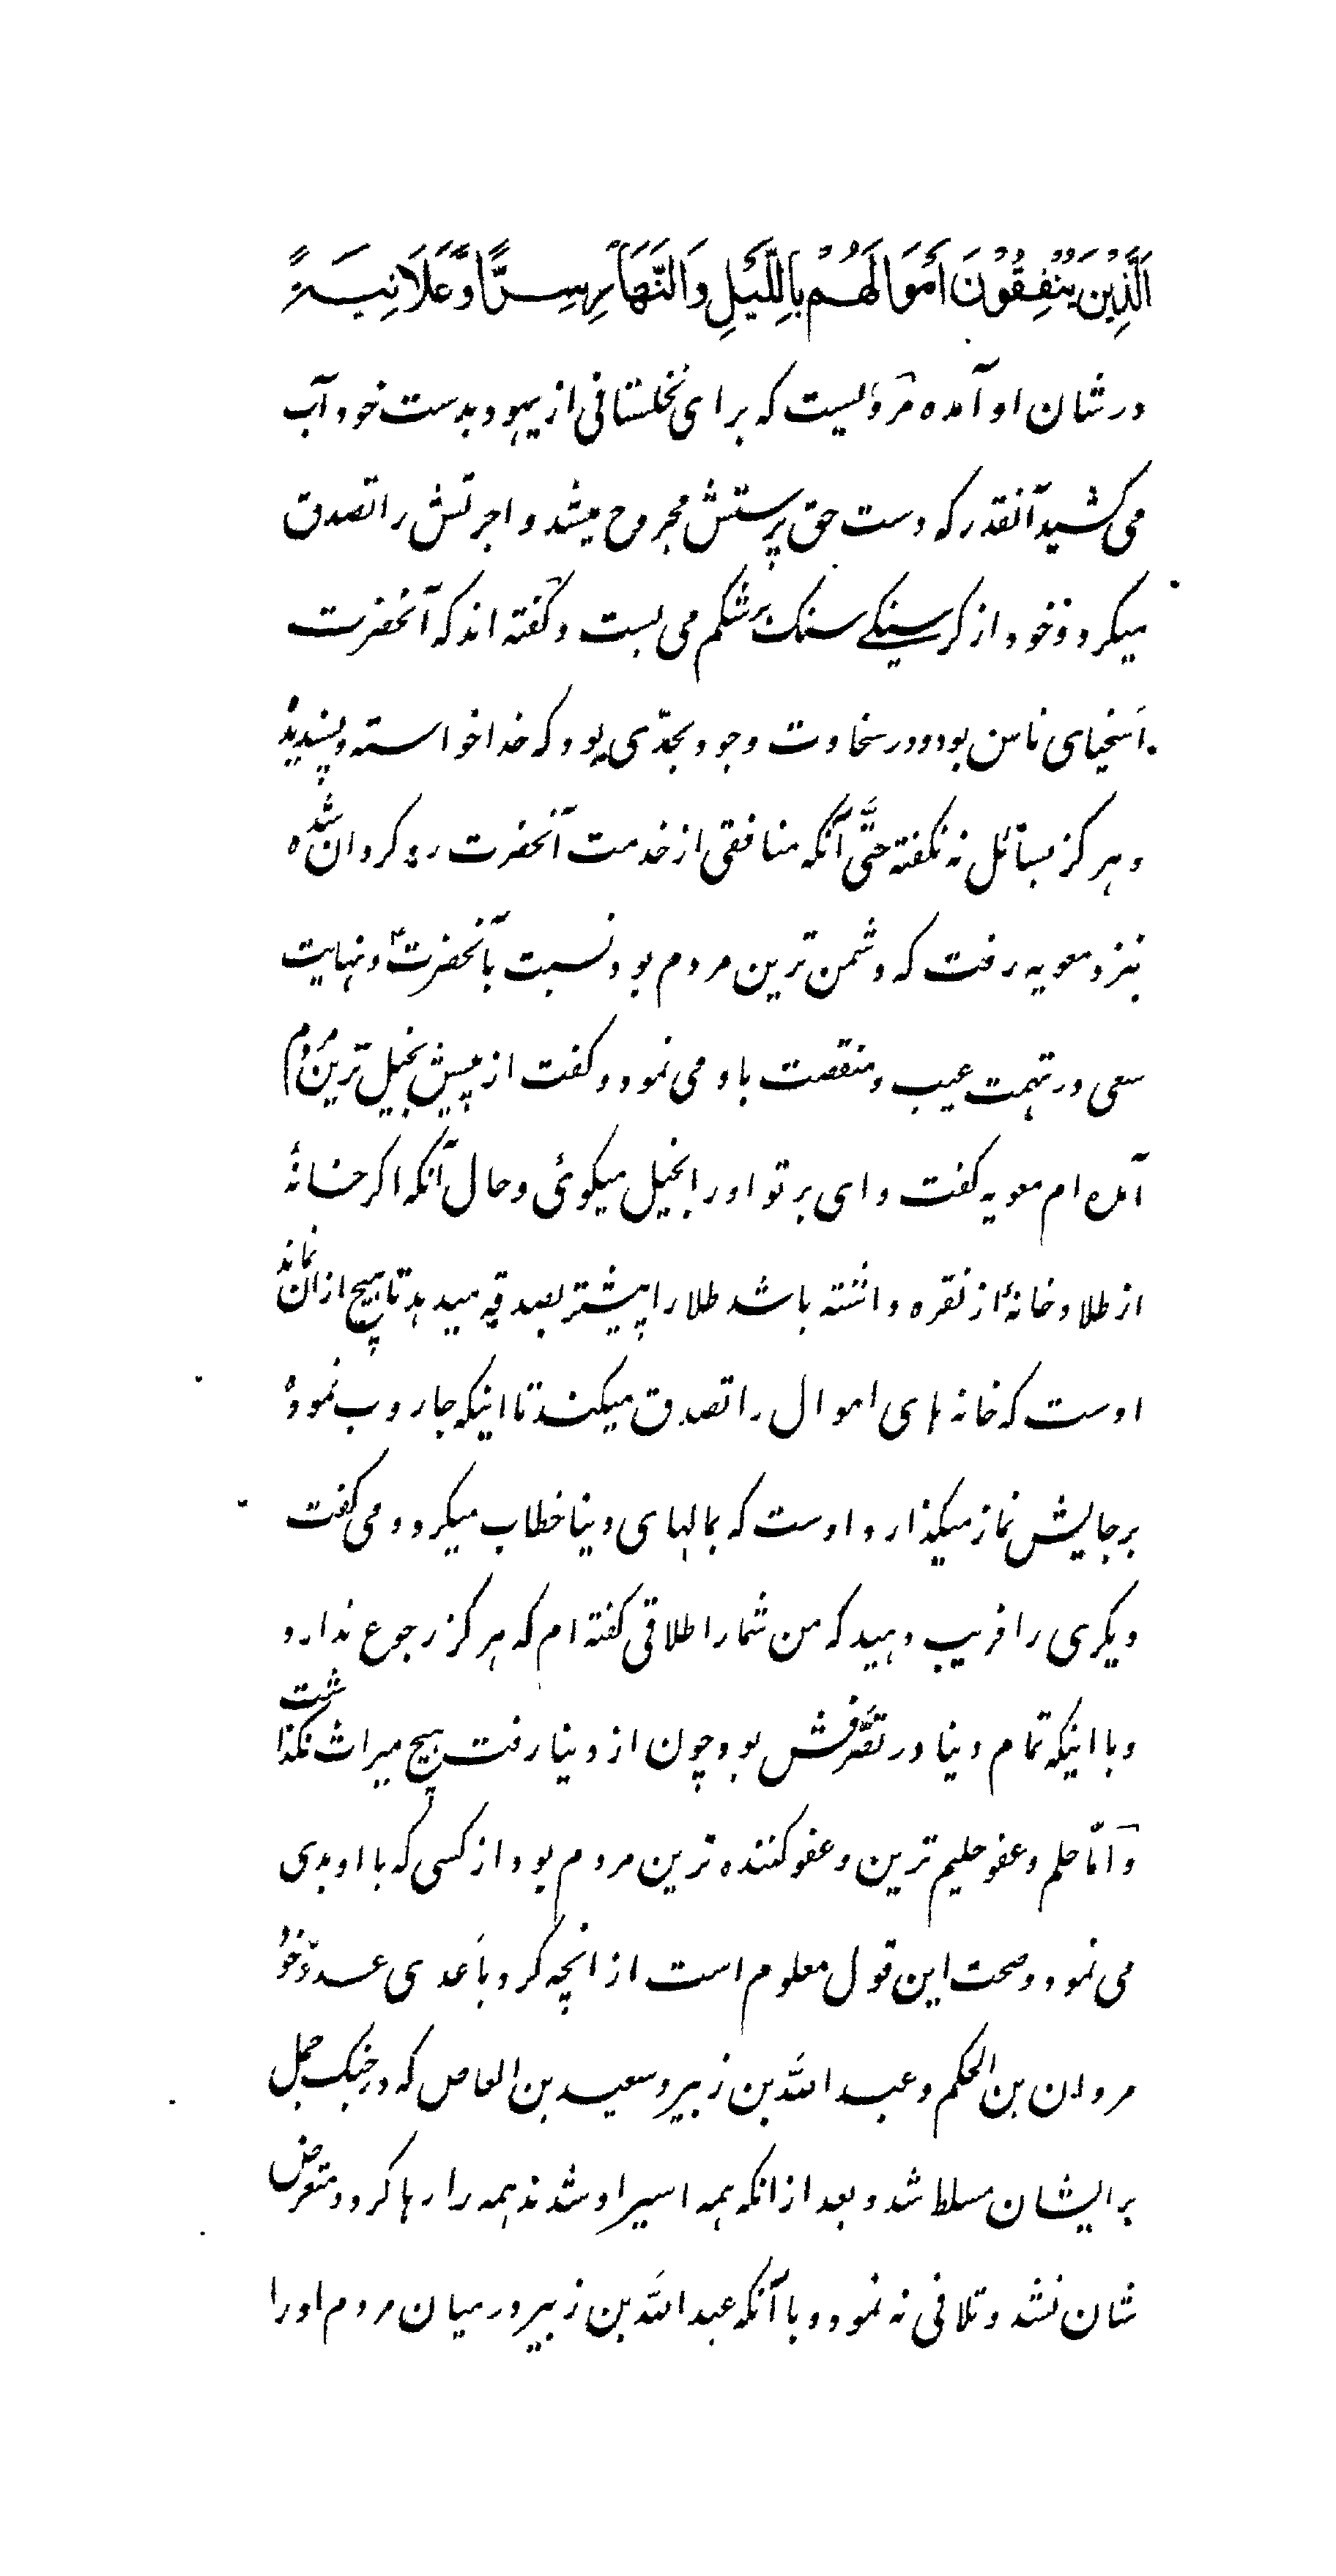 اَلَّذِیْنَ یُنْفِقُوْنَ اَمْوَالَهُمْ بِاللَّیْلِ وَالنَّهَارِ سِرًّا وَّعَلَانِیَةً
در شان او آمده مرویست که برای نخلستانی از یهود بدست خود آب
می کشید آنقدر که دست حق پرستش مجروح میشد و اجرتش را تصدق
میکرد و خود از کرسنکے سنک بر شکم می بست و کفته اند که آنحضرت
اسخیای ناس بود و در سخاوت وجود بحدّی بود که خدا خواسته و پسندیده
و هرکز بسائل نه نکفته حتّی آنکه منافقی از خدمت آنحضرت رو کردان شده
بنزد معویه رفت که دشمن ترین مردم بود نسبت بآنحضرت و نهایت
سعی در تهمت عیب و منقصت باو می نمود و کفت از پیش بخیل ترین مردم
آمده ام معویه کفت وای بر تو او را بخیل میکوئی و حال آنکه اکر خانهٔ
از طلا و خانهٔ از نقره داشته باشد طلا را پیشتر بصدقه میدهد تا هیچ ازان نماند
اوست که خانه های اموال را تصدق میکند تا اینکه جاروب نموده
بر جایش نماز میکذارد و اوست که بمالهای دنیا خطاب میکرد و می کفت
دیکری را فریب دهید که من شما را طلاقی کفته ام که هرکز رجوع ندارد
و با اینکه تمام دنیا در تصّرفش بود چون از دنیا رفت هیچ میراث نکذاشت
و امّا حلم و عفو حلیم ترین و عفو کننده ترین مردم بود از کسی که با او بدی
می نمود و صحت این قول معلوم است از انچه کرد با عدی عدوّ خود
مروان بن الحکم و عبد الله بن زبیر و سعید بن العاص که در جنک جمل
بر ایشان مسلط شد و بعد از انکه همه اسیر او شدند همه را رها کرد و متعرض
شان نشد و تلافی نه نمود و با آنکه عبد الله بن زبیر در میان مردم او را